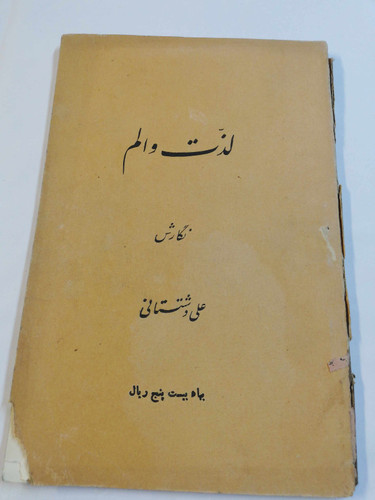 لذّت والم
نگارش
علی دشتستانی
بهاء بیست پنج ریال